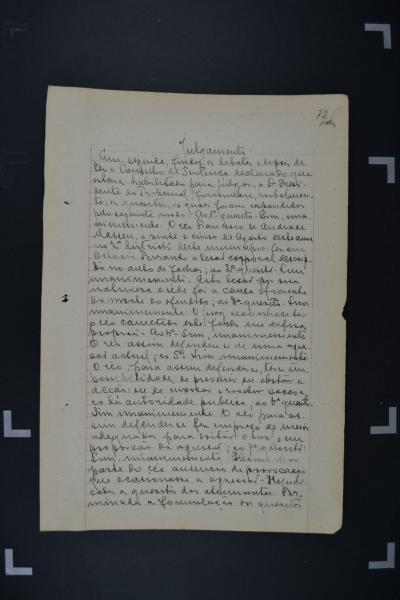 72
Julgamento
Em seguida, findos os debates e depois de
ler o Conselho de Sentença declarado que
estava habilitado para julgar, o Dr. Presi-
dente do Tribunal formulou,
te, os quesitos, os quaes foram respondidos
pelo seguinte modo: Ao 1º quesito: Sim, una-
nimemente. O réo Francisco de Andrade
em vinte e cinco de Agosto
no 2º districto deste municipio, fez em
Fernando a lesão corporal descrip-
ta no auto de ; ao 2º quesito: Sim
unanimemente. Esta lesão por sua
natureza e séde foi a causa efficiente
da morte do offendido; ao 3º quesito: Sim
unanimemente. O jury reconhece que
o réo commetteu este facto em defesa
propria. Ao 4º Sim, unanimemente
O réo assim defendeu-se de uma aggres-
são actual; ao 5º Sim unanimemente
O réo para assim defender-se, teve im-
possibilidade de prevenir ou obstar a
acção ou de invocar e receber soccor-
ro da autoridade publica; ao 6º quesito
Sim unanimemente. O réo para as-
sim defender-se fez emprego de meios
adequados para evitar o mal e em
proporção da aggressão; ao 7º quesito:
Sim, unanimemente. Houve por
parte do réo ausencia de provocação
que occasionasse a aggressão.
cados os quesitos das attenuantes. Ter-
minada a formulação dos quesitos